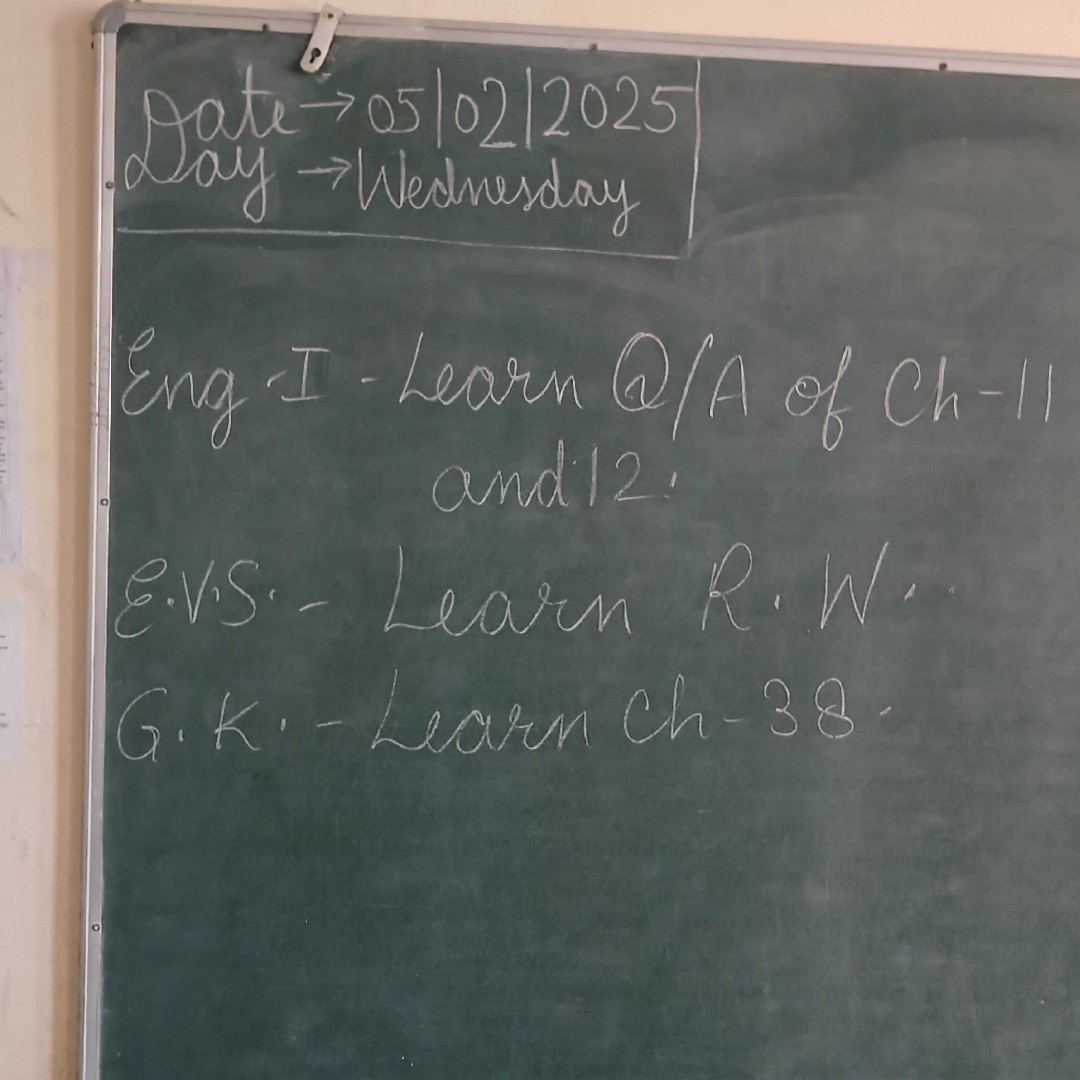 Date → 05|02|2025
Day → Wednesday
Eng -I - Learn Q/A of Ch-11
and 12.
E.V.S. - Learn R.W..
G.K. - Learn Ch-38.